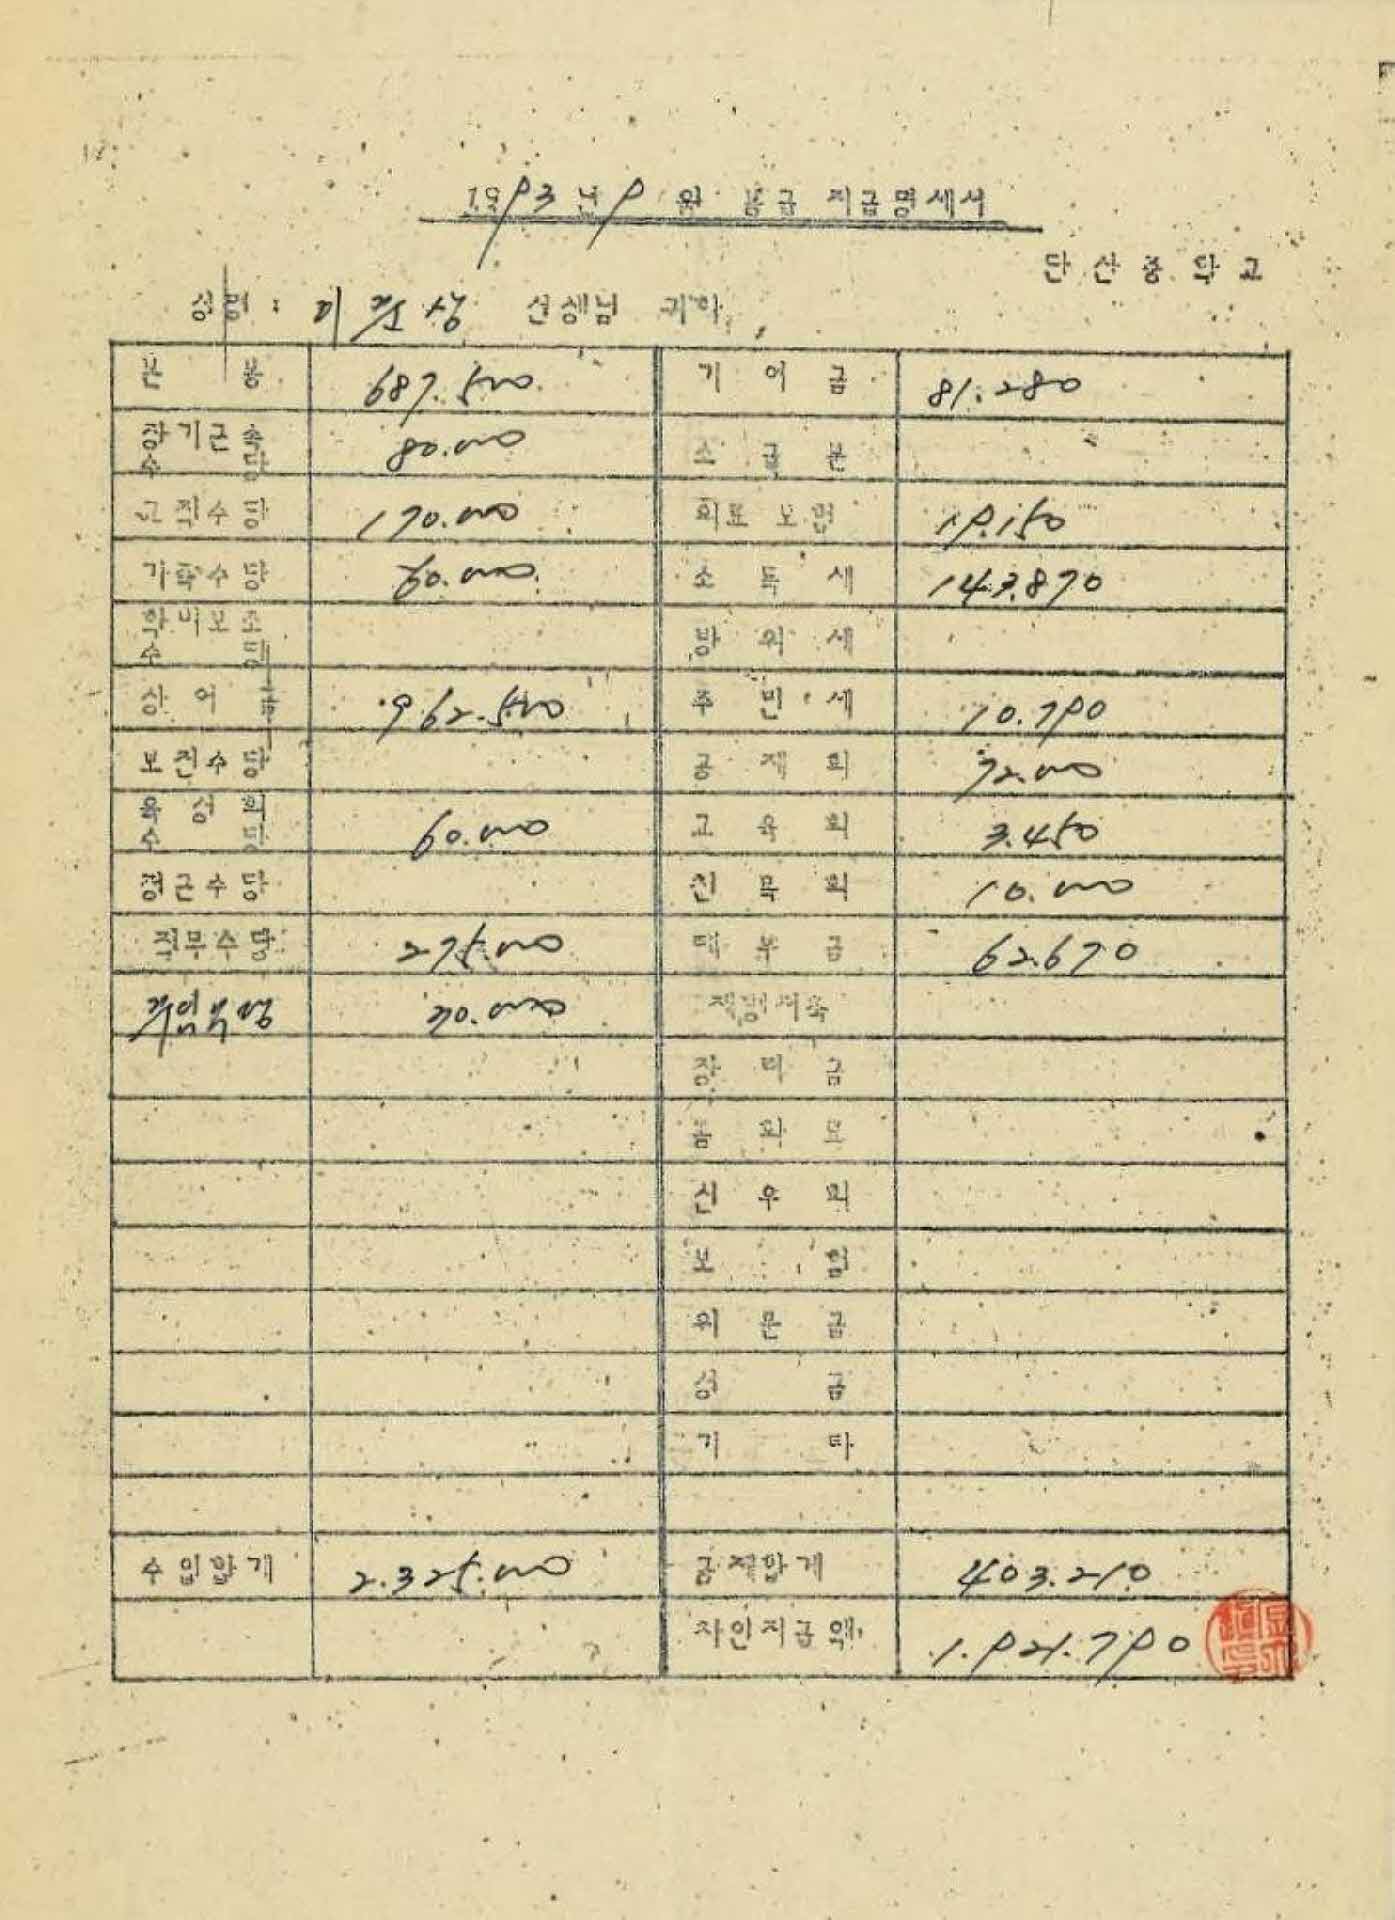 1993년 9월 봉급 지급명세서
단산중학교
성명 : 선생님 귀하
본 봉 687.500 기여금 81.280
장기근속수당 80.000 소급분
교직수당 170.000 의료보험 19.150
가족수당 60.000 소득세 143.870
학비보조수당 방위세
상여금 962.500 주민세 10.790
보전수당 공제회 72.000
육성회수당 60.000 교육회 3.450
정근수당 친목회 10.000
직무수당 275.000 대부금 62.670
주임수당 30.000 재형저축
장려금
봉화료
신우회
보험
위문금
성금
기타
수입합계 2.325.000 공제합계 403.210
차인지급액 1.921.790